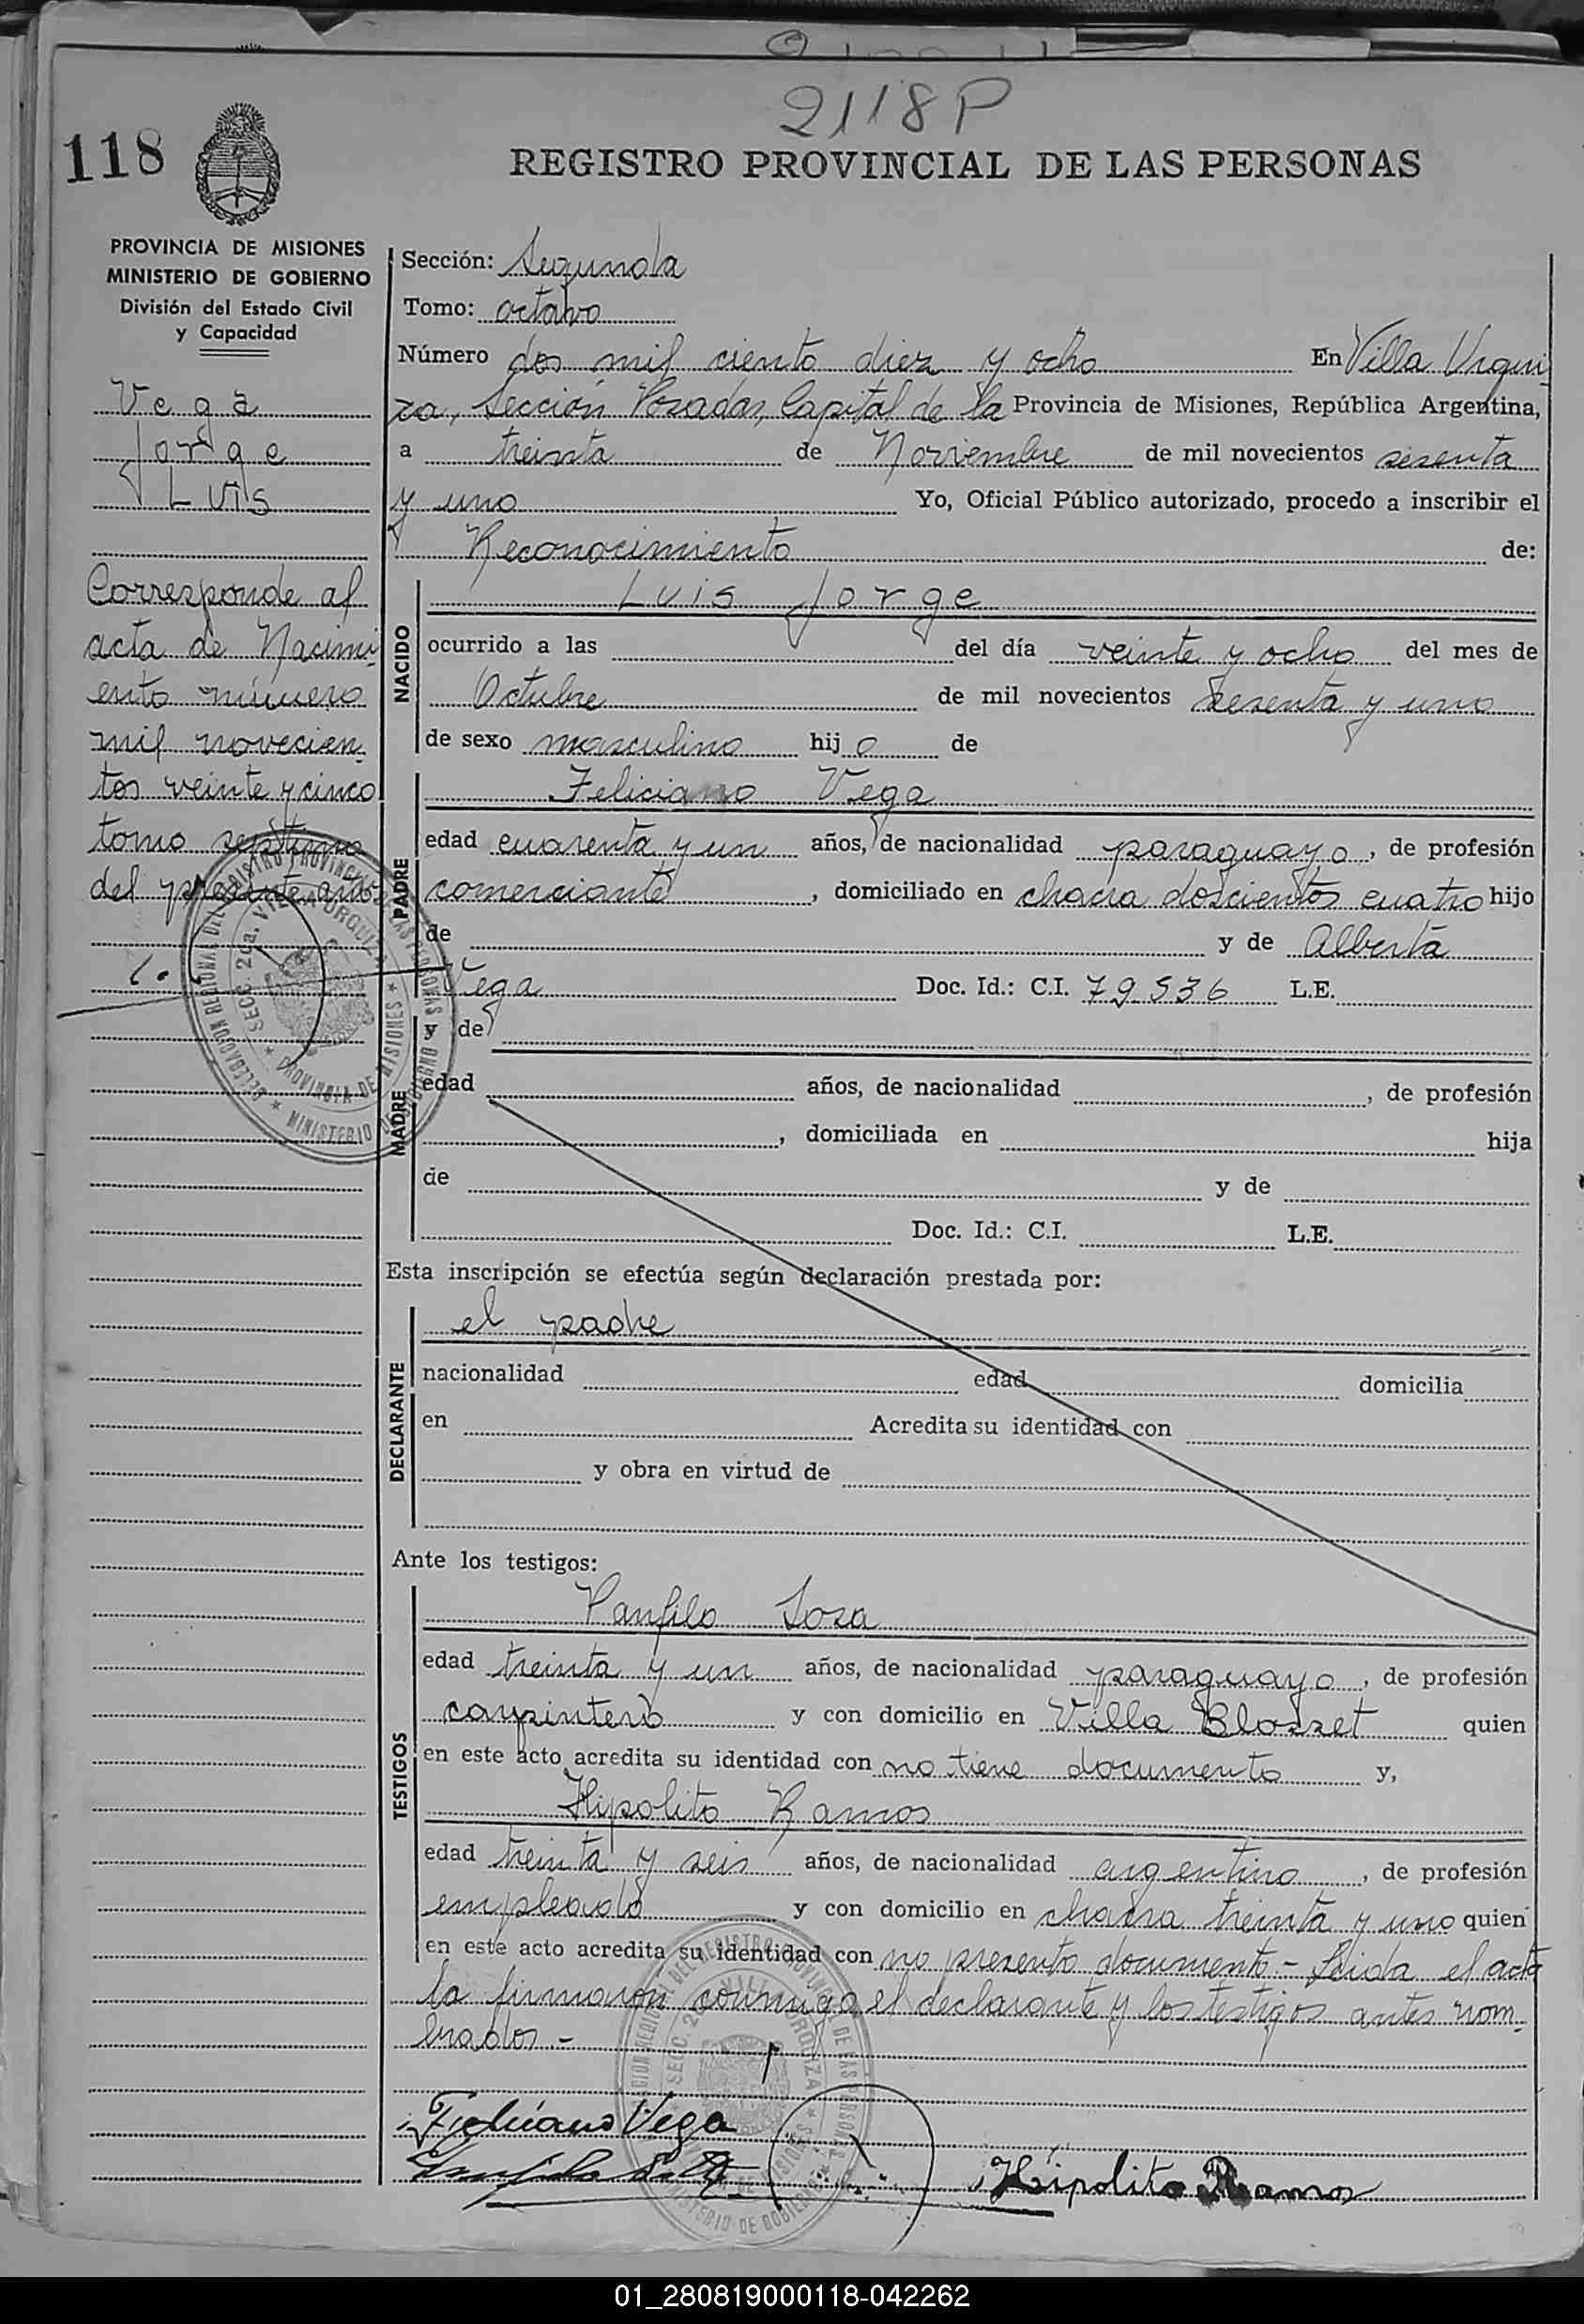 2118P
118
REGISTRO PROVINCIAL DE LAS PERSONAS
PROVINCIA DE MISIONES
MINISTERIO DE GOBIERNO
División del Estado Civil
y Capacidad
Vega
Jorge
Luis
Corresponde al
acta de Nacimi
ento número
mil novecien
tos veinte y cinco
tomo septimo
del presente año
Sección: Segunda
Tomo: octavo
Número dos mil ciento diez y ocho En Villa Urqui
za, Sección Posadas, Capital de la Provincia de Misiones, República Argentina,
a treinta de Noviembre de mil novecientos sesenta
y uno Yo, Oficial Público autorizado, procedo a inscribir el
Reconocimiento de:
NACIDO
Luis Jorge
ocurrido a las del día veinte y ocho del mes de
Octubre de mil novecientos sesenta y uno
de sexo masculino hijo de
PADRE
Feliciano Vega
edad cuarenta y un años, de nacionalidad paraguayo, de profesión
comerciante, domiciliado en chacra doscientos cuatro hijo
de y de Alberta
Vega Doc. Id.: C.I. 79536 L.E.
MADRE
y de
edad años, de nacionalidad , de profesión
, domiciliada en hija
de y de
Doc. Id.: C.I. L.E.
Esta inscripción se efectúa según declaración prestada por:
DECLARANTE
el padre
nacionalidad edad domicilia
en Acredita su identidad con
y obra en virtud de
Ante los testigos:
TESTIGOS
Panfilo Sosa
edad treinta y un años, de nacionalidad paraguayo, de profesión
carpintero y con domicilio en Villa Blosset quien
en este acto acredita su identidad con no tiene documento y,
Hipolito Ramos
edad treinta y seis años, de nacionalidad argentino, de profesión
empleado y con domicilio en chacra treinta y uno quien
en este acto acredita su identidad con no presento documento - Leida el acta
la firmaron conmigo el declarante y los testigos antes nom
brados.-
DELEGACION REGIONAL DEL REGISTRO PROVINCIAL DE LAS PERSONAS
SECC. 2da. VILLA URQUIZA
PROVINCIA DE MISIONES
MINISTERIO DE GOBIERNO
Feliciano Vega
Hipolito Ramos
01_280819000118-042262